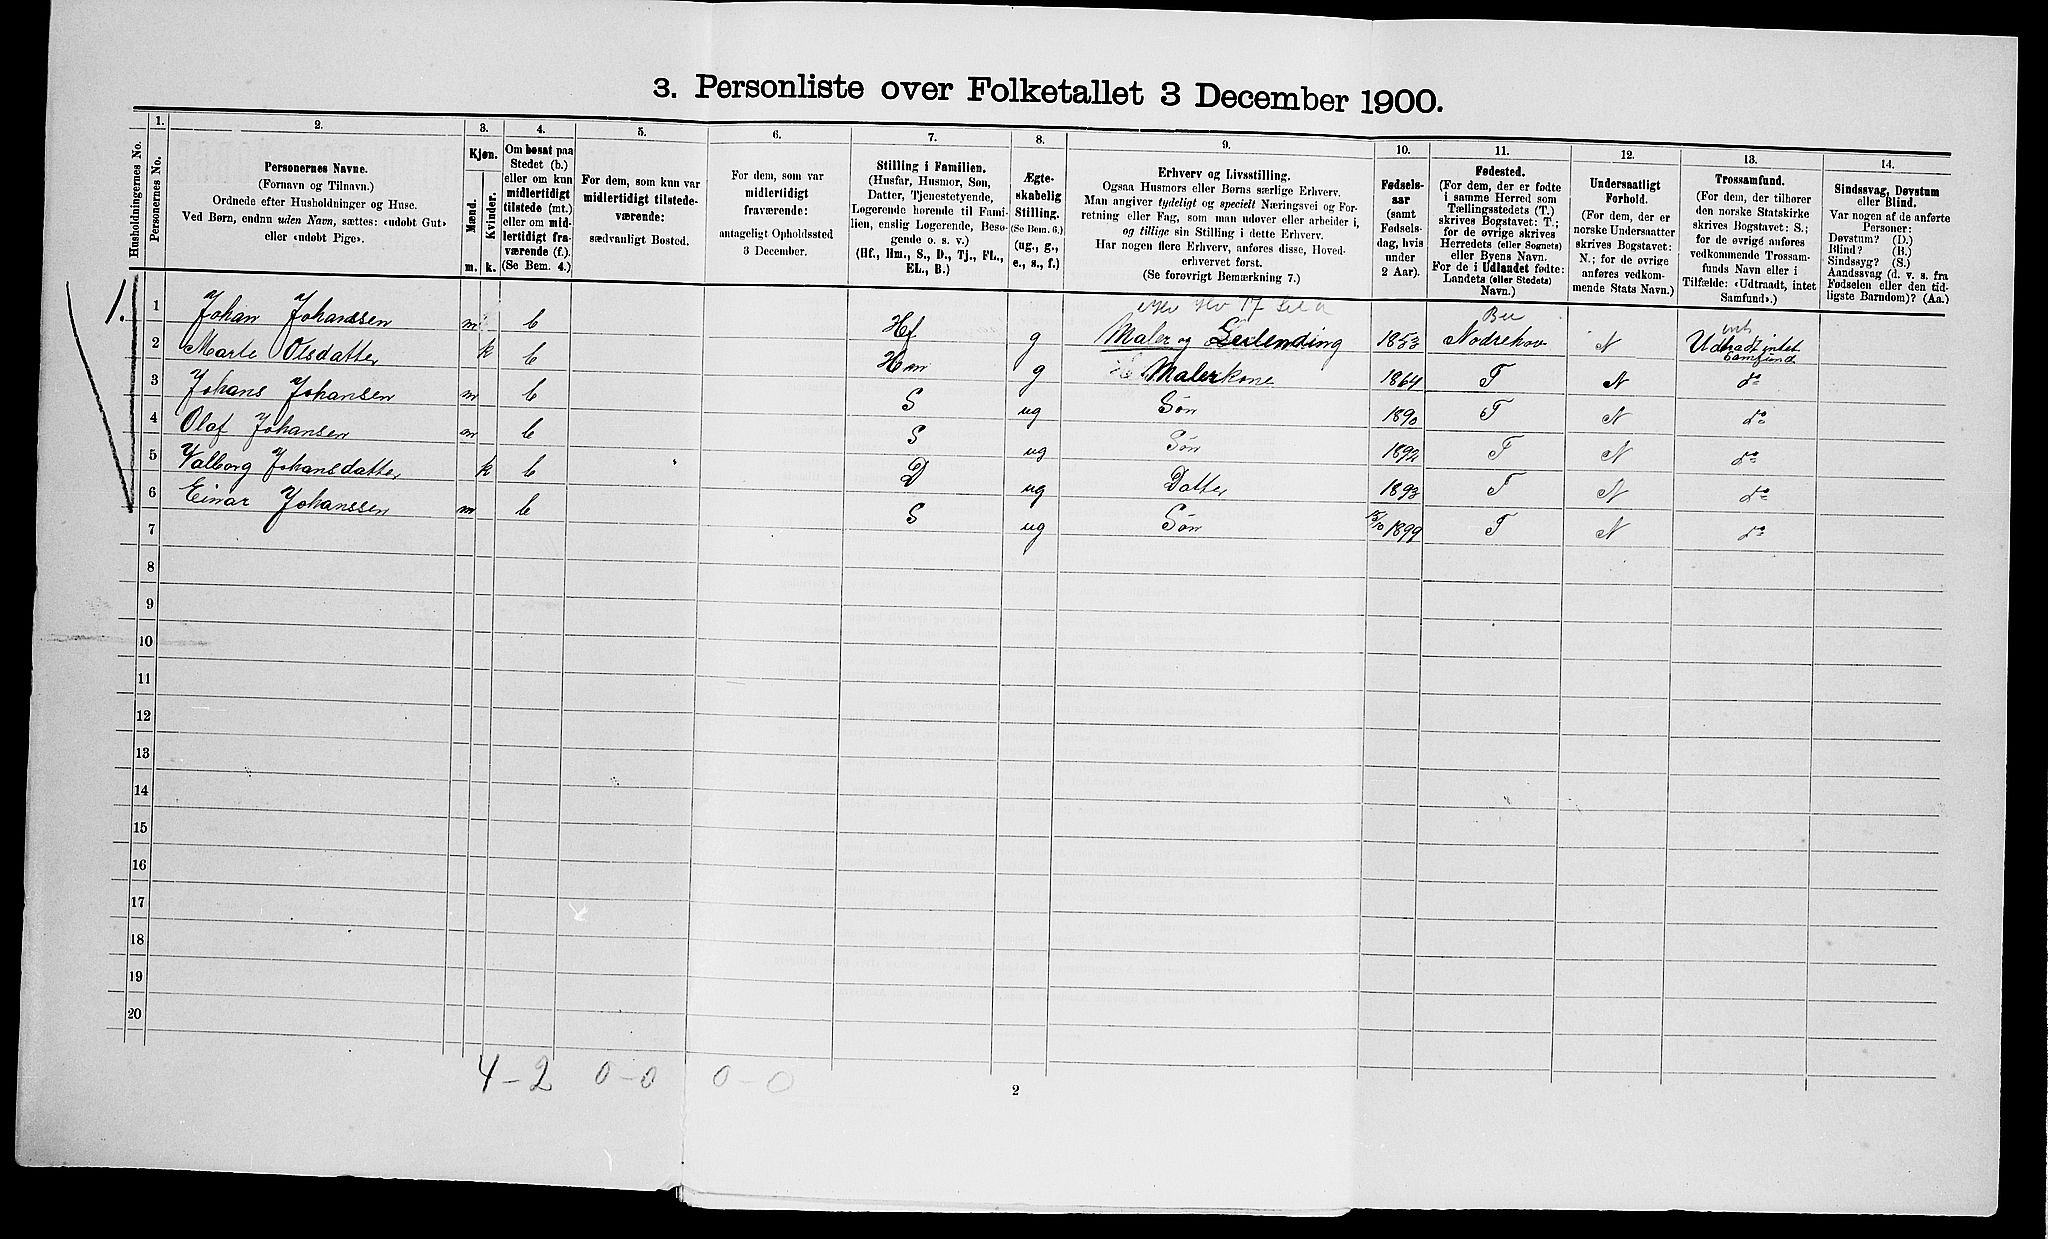 3. Personliste over Folketallet 3 December 1900.
1. 2. 3. 4. 5. 6. 7. 8. 9. 10. 11. 12. 13. 14.
Husholdningernes No.
Personernes No.
Personernes Navne.
(Fornavn og Tilnavn.)
Ordnede efter Husholdninger og Huse.
Ved Børn, endnu uden Navn, sættes: «udobt Gut»
eller «udobt Pige».
Kjøn.
Mænd. Kvinder.
m. k.
Om bosat paa
Stedet (b.)
eller om kun
midlertidigt
tilstede (mt.)
eller om mid-
lertidigt fra-
værende (f.).
(Se Bem. 4.)
For dem, som kun var
midlertidigt tilstede-
værende:
sædvanligt Bosted.
For dem, som var
midlertidigt
fraværende:
antageligt Opholdssted
3 December.
Stilling i Familien.
(Husfar, Husmor, Søn,
Datter, Tjenestetyende,
Logerende hørende til Fami-
lien, enslig Logerende, Besø-
gende o. s. v.)
(Hf., Hm., S., D., Tj., FL.,
EL., B.)
Ægte-
skabelig
Stilling.
(Se Bem. 6.)
(ug., g.,
e., s., f.)
Erhverv og Livsstilling.
Ogsaa Husmors eller Børns særlige Erhverv.
Man angiver tydeligt og specielt Næringsvei og For-
retning eller Fag, som man udøver eller arbeider i,
og tillige sin Stilling i dette Erhverv.
Har nogen flere Erhverv, anføres disse, Hoved-
erhvervet først.
(Se forøvrigt Bemærkning 7.)
Fødsels-
aar
(samt
Fødsels-
dag, hvis
under
2 Aar).
Fødested.
(For dem, der er fødte
i samme Herred som
Tællingsstedets (T.)
skrives Bogstavet: T.;
for de øvrige skrives
Herredets (eller Sognets)
eller Byens Navn.
For de i Udlandet fødte:
Landets (eller Stedets)
Navn.)
Undersaatligt
Forhold.
(For dem, der er
norske Undersaatter
skrives Bogstavet:
N.; for de øvrige
anføres vedkom-
mende Stats Navn.)
Trossamfund.
(For dem, der tilhører
den norske Statskirke
skrives Bogstavet: S.;
for de øvrige anføres
vedkommende Trossam-
funds Navn eller i
Tilfælde: «Udtraadt, intet
Samfund».)
Sindssvag, Døvstum
eller Blind.
Var nogen af de anførte
Personer:
Døvstum? (D.)
Blind? (B.)
Sindssyg? (S.)
Aandssvag (d. v. s. fra
Fødselen eller den tid-
ligste Barndom)? (Aa.)
1. 1 Johan Johanssen m b Hf g Maler og Leilending 1853 Nodrehov N Udtradt intet Samfund
2 Marte Olsdatter k b Hm g Malerkone 1864 T N do
3 Johans Johansen m b S ug Søn 1890 T N do
4 Olaf Johansen m b S ug Søn 1892 T N do
5 Valborg Johansdatter k b D ug Datter 1893 T N do
6 Einar Johanssen m b S ug Søn 15/10 1899 T N do
7
8
9
10
11
12
13
14
15
16
17
18
19
20
4-2 0-0 0-0
2